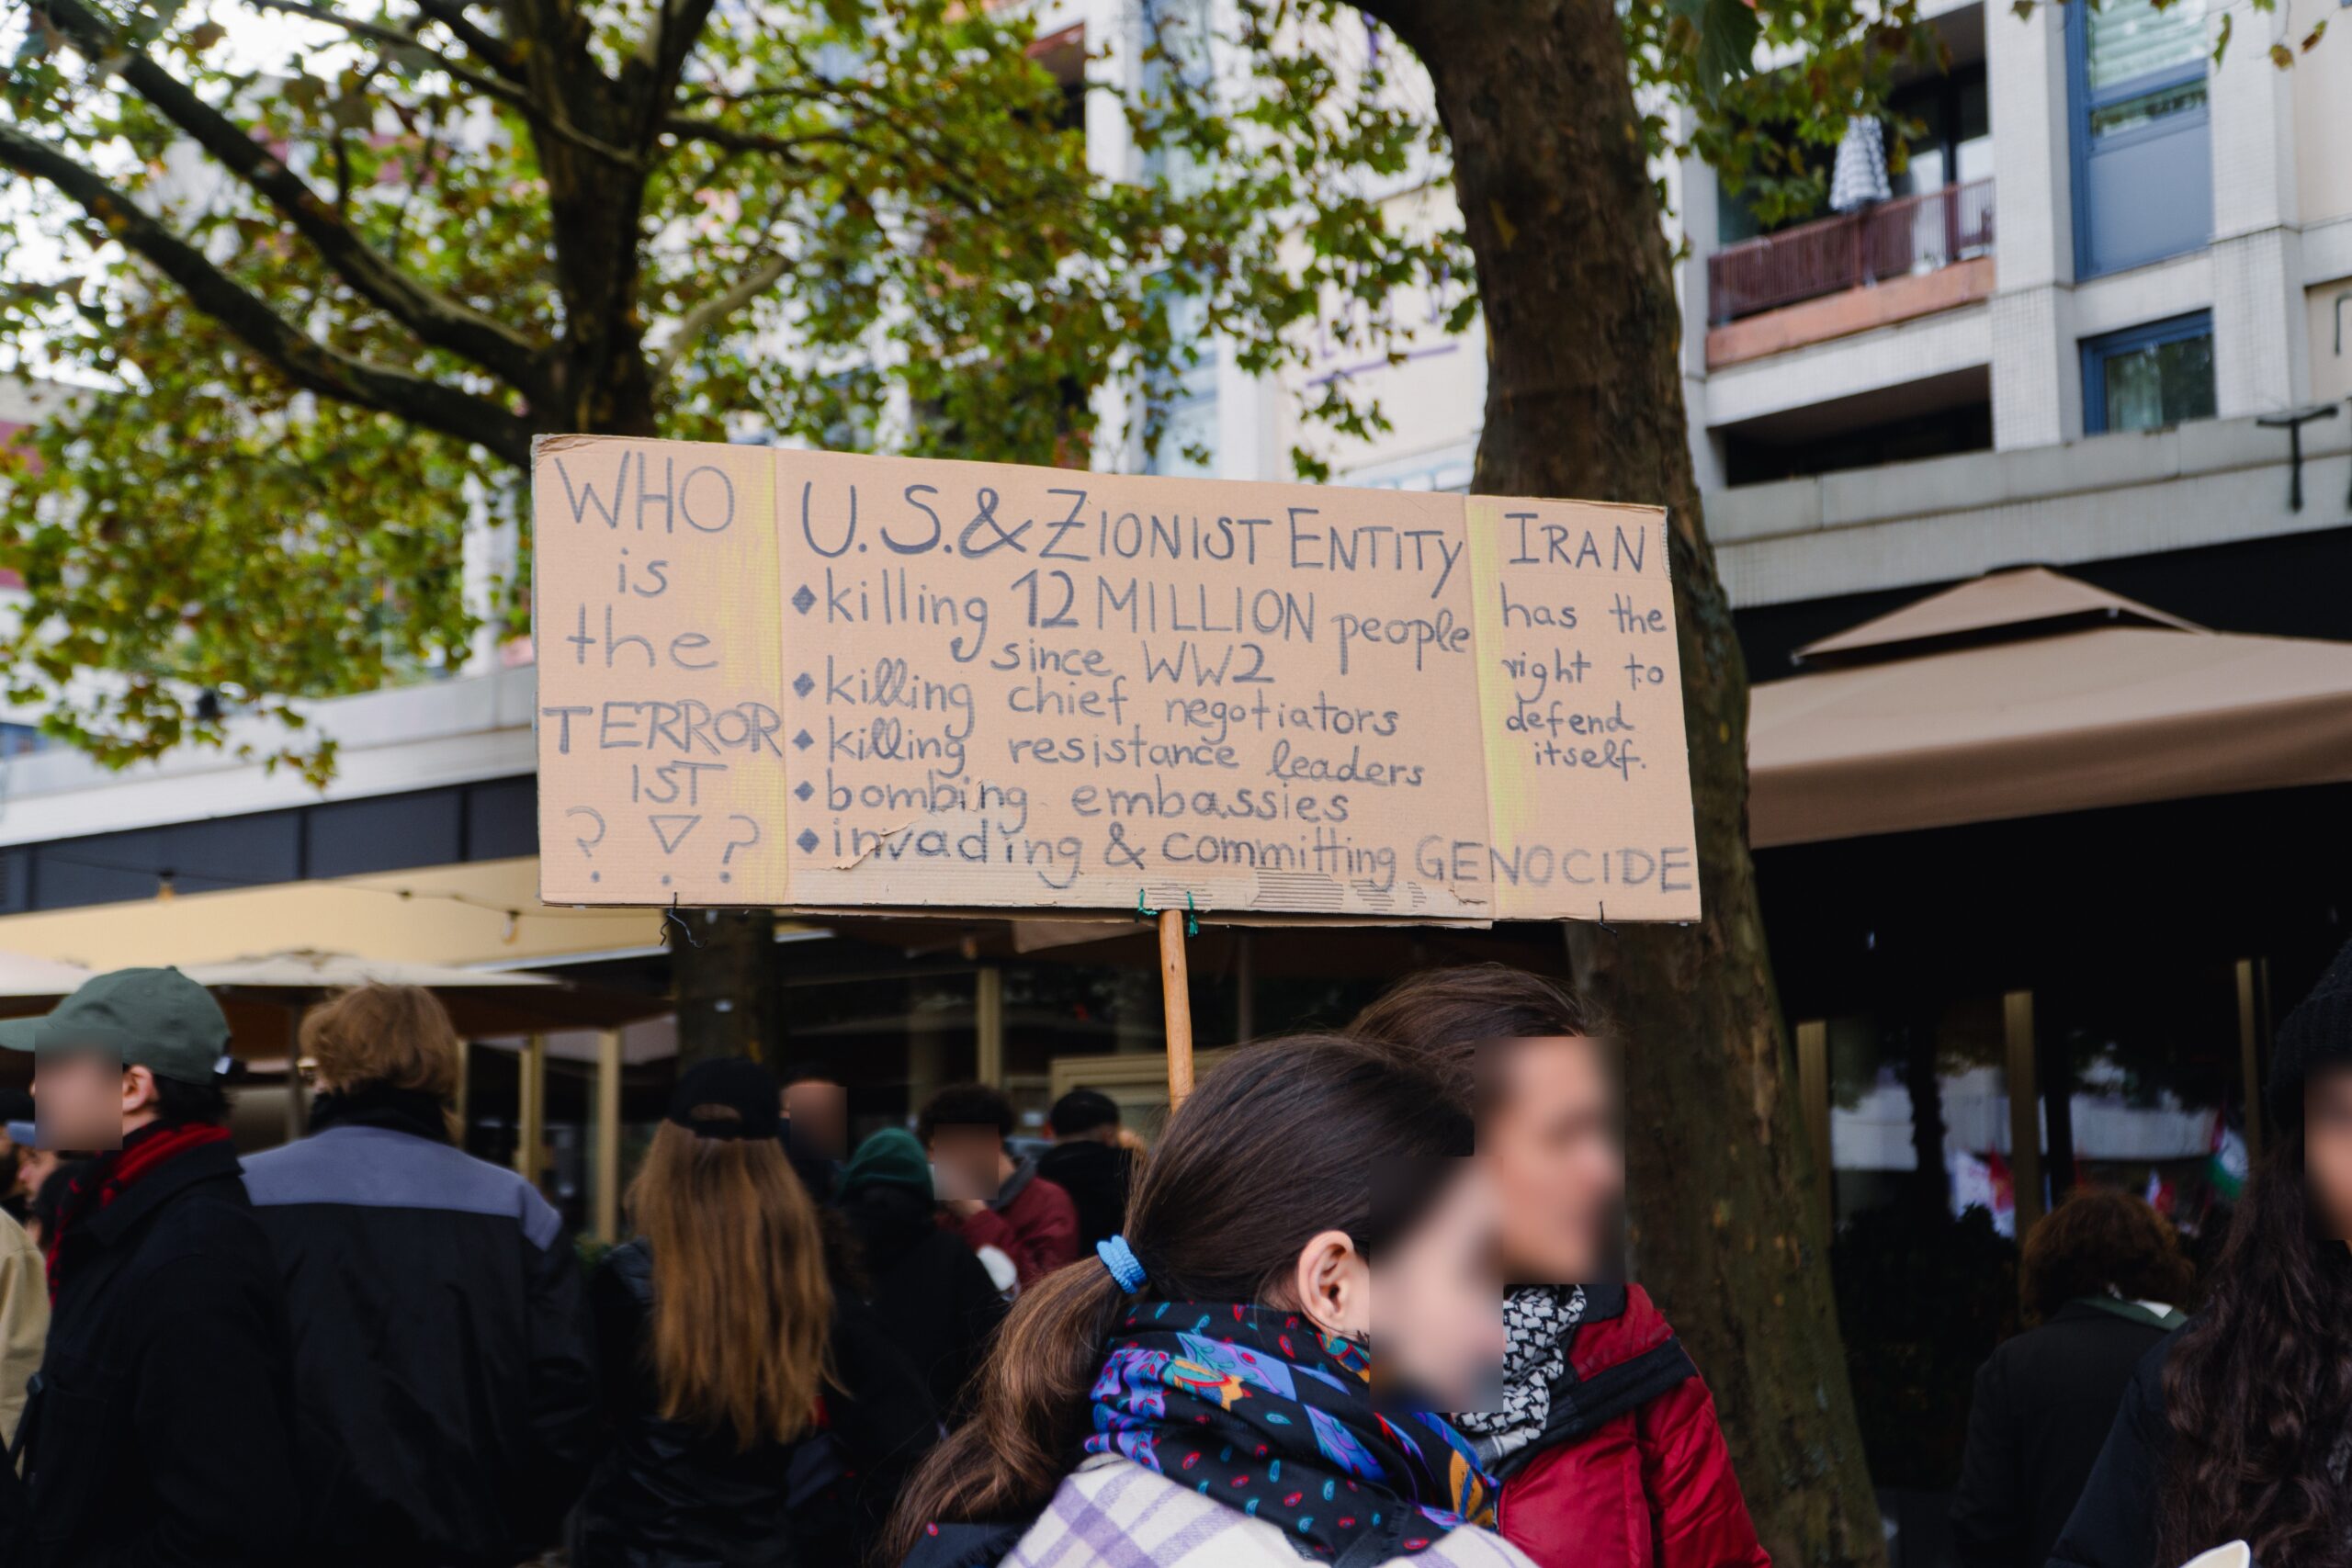 WHO
is
the
TERROR
IST
? ? ?
U.S. & ZIONIST ENTITY
◆killing 12 MILLION people
since WW2
◆killing chief negotiators
◆killing resistance leaders
◆bombing embassies
◆invading & committing GENOCIDE
IRAN
has the
right to
defend
itself.